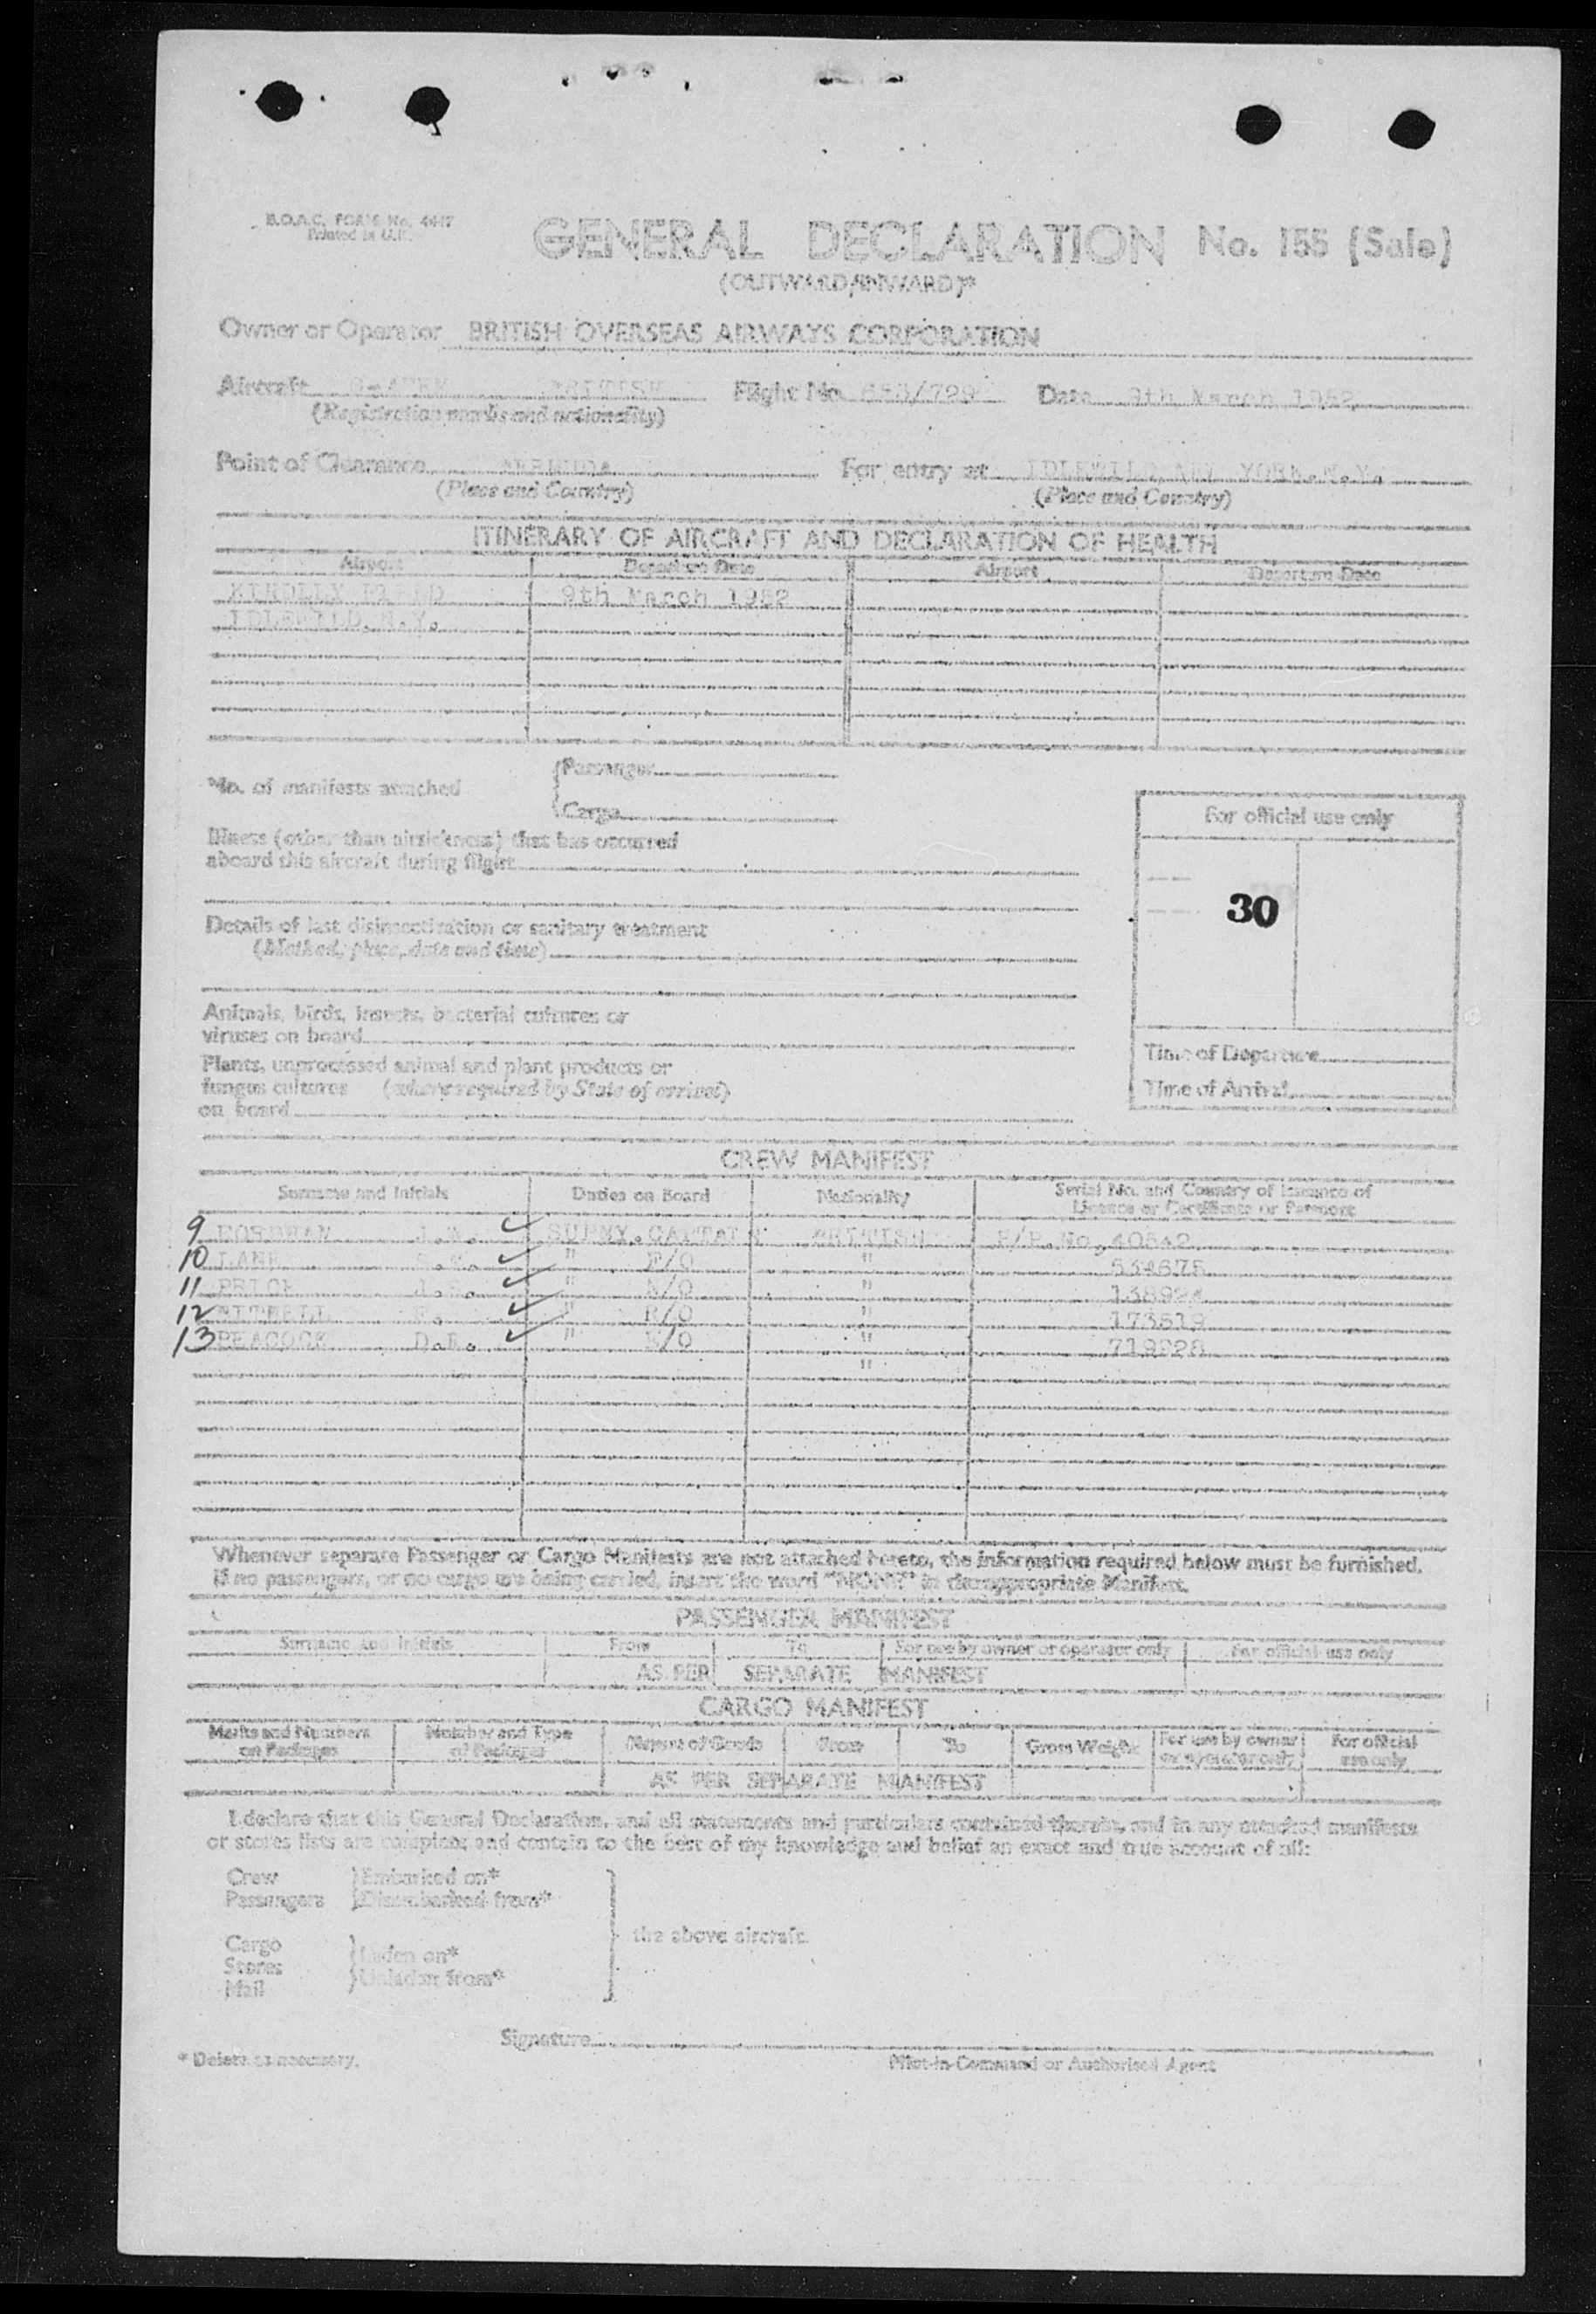 B.O.A.C. FORM No. 4447
Printed in U.K.
GENERAL DECLARATION No. 155 (Sale)
(OUTWARD/INWARD)*
Owner or Operator BRITISH OVERSEAS AIRWAYS CORPORATION
Aircraft BRITISH Flight No. 653/729 Date 9th March 1952
(Registration marks and nationality)
Point of Clearance BERMUDA For entry at IDLEWILD, NEW YORK, N.Y.
(Place and Country) (Place and Country)
ITINERARY OF AIRCRAFT AND DECLARATION OF HEALTH
Airport Departure Date Airport Departure Date
KINDLEY FIELD 9th March 1952
IDLEWILD, N.Y.
No. of manifests attached
Passenger
Cargo
For official use only
Illness (other than airsickness) that has occurred
aboard this aircraft during flight
30
Details of last disinsectization or sanitary treatment
(Method, place, date and time)
Animals, birds, insects, bacterial cultures or
viruses on board
Time of Departure
Plants, unprocessed animal and plant products or
fungus cultures (where required by State of arrival)
on board
Time of Arrival
CREW MANIFEST
Surname and Initials Duties on Board Nationality Serial No. and Country of Issuance of
Licence or Certificate or Passport
9 SUPNY. CAPTAIN BRITISH P/P. No. 40542
10 LANE " F/O " 534675
11 PRICE " N/O " 138924
12 MITCHELL " R/O " 173519
13 PEACOCK D.E. " E/O " 719228
"
Whenever separate Passenger or Cargo Manifests are not attached hereto, the information required below must be furnished.
If no passengers, or no cargo are being carried, insert the word "NONE" in the appropriate Manifest.
PASSENGER MANIFEST
Surname and Initials From To For use by owner or operator only For official use only
AS PER SEPARATE MANIFEST
CARGO MANIFEST
Marks and Numbers on Packages Number and Type of Packages Nature of Goods From To Gross Weight For use by owner or operator only For official use only
AS PER SEPARATE MANIFEST
I declare that this General Declaration, and all statements and particulars contained therein, and in any attached manifests
or stores lists are complete and contain to the best of my knowledge and belief an exact and true account of all:
Crew Embarked on*
Passengers Disembarked from*
the above aircraft.
Cargo
Stores Laden on*
Mail Unladen from*
Signature
* Delete as necessary. Pilot-in-Command or Authorised Agent